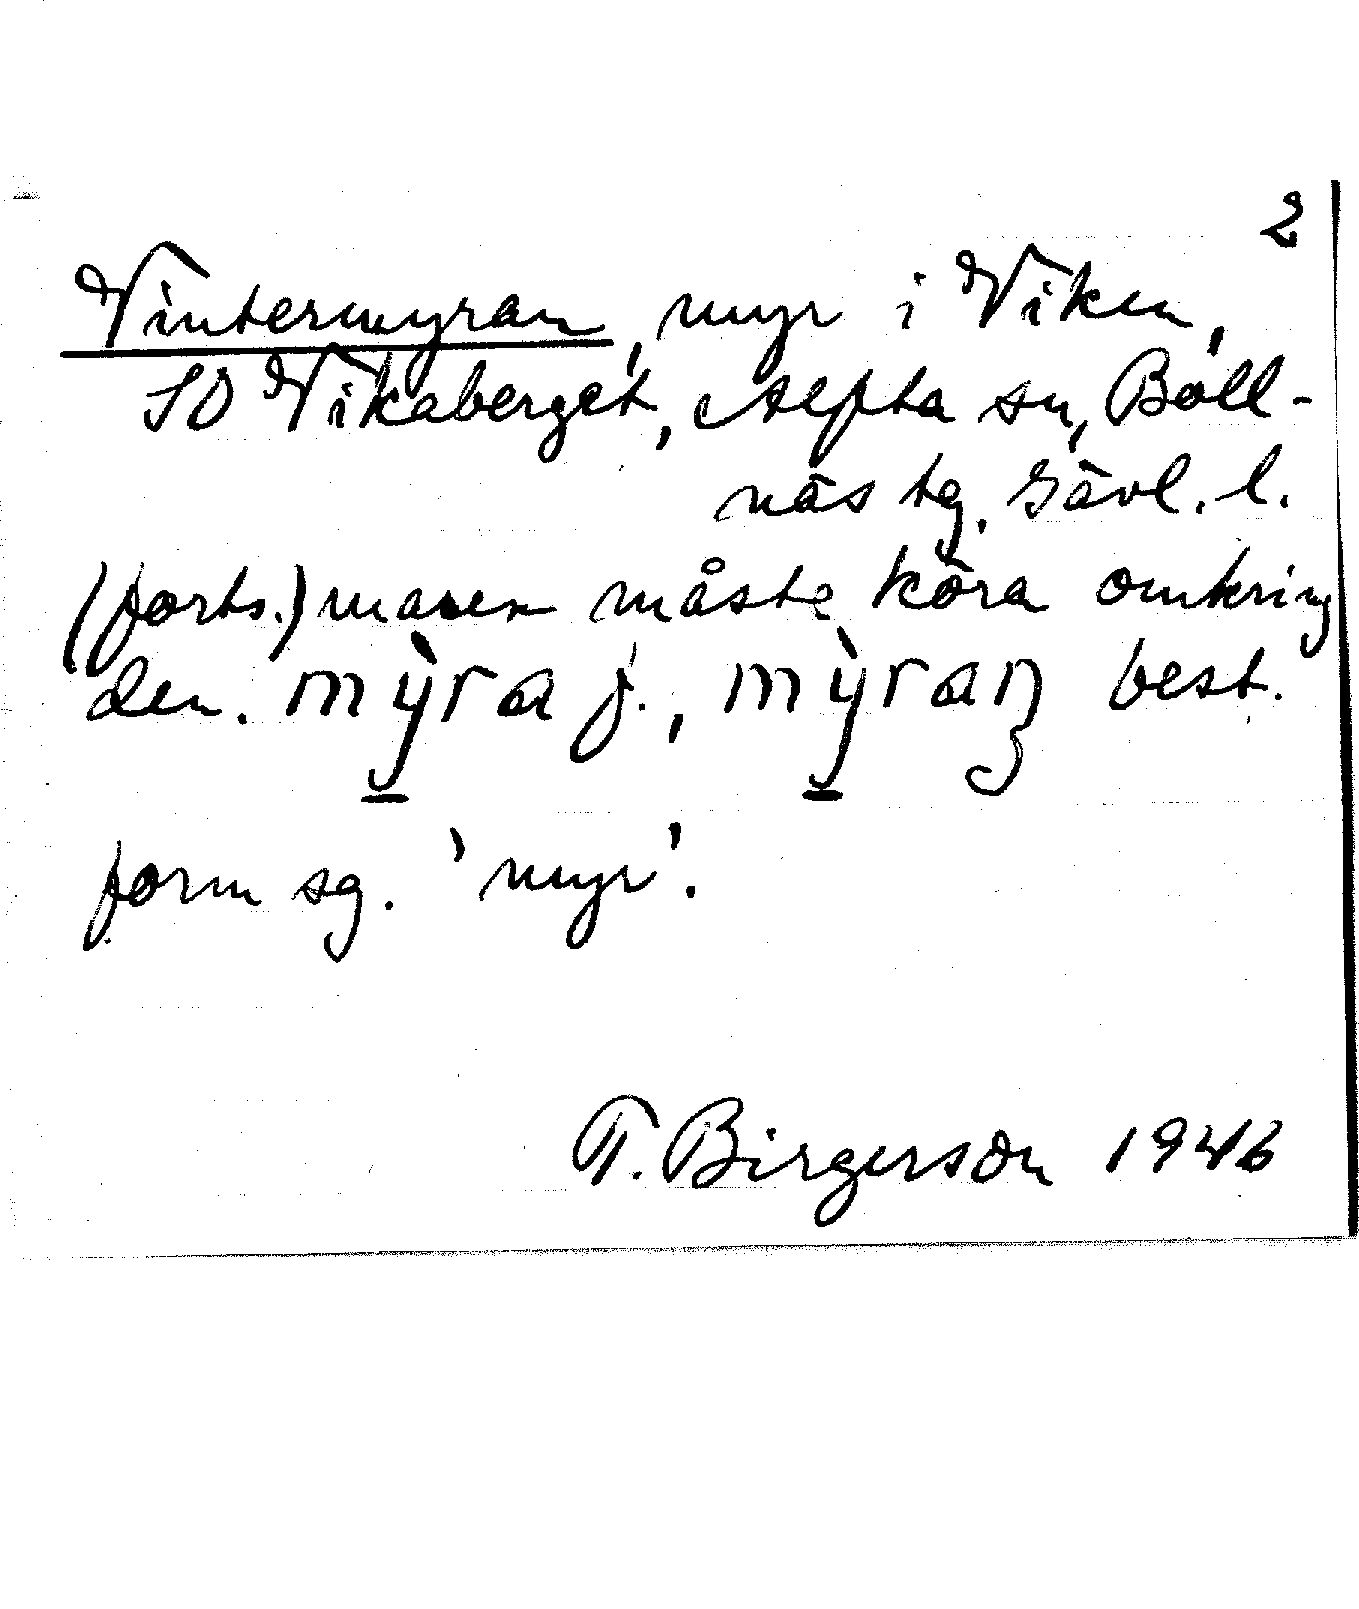 2
Vintermyran, myr i Viken,
SO Vikaberget, Alfta sn, Boll-
näs tg. Gävl. l.
(forts.) maren måste köra omkring
den. mỳra f., mỳraŋ best.
form sg. 'myr'.
T. Birgerson 1946